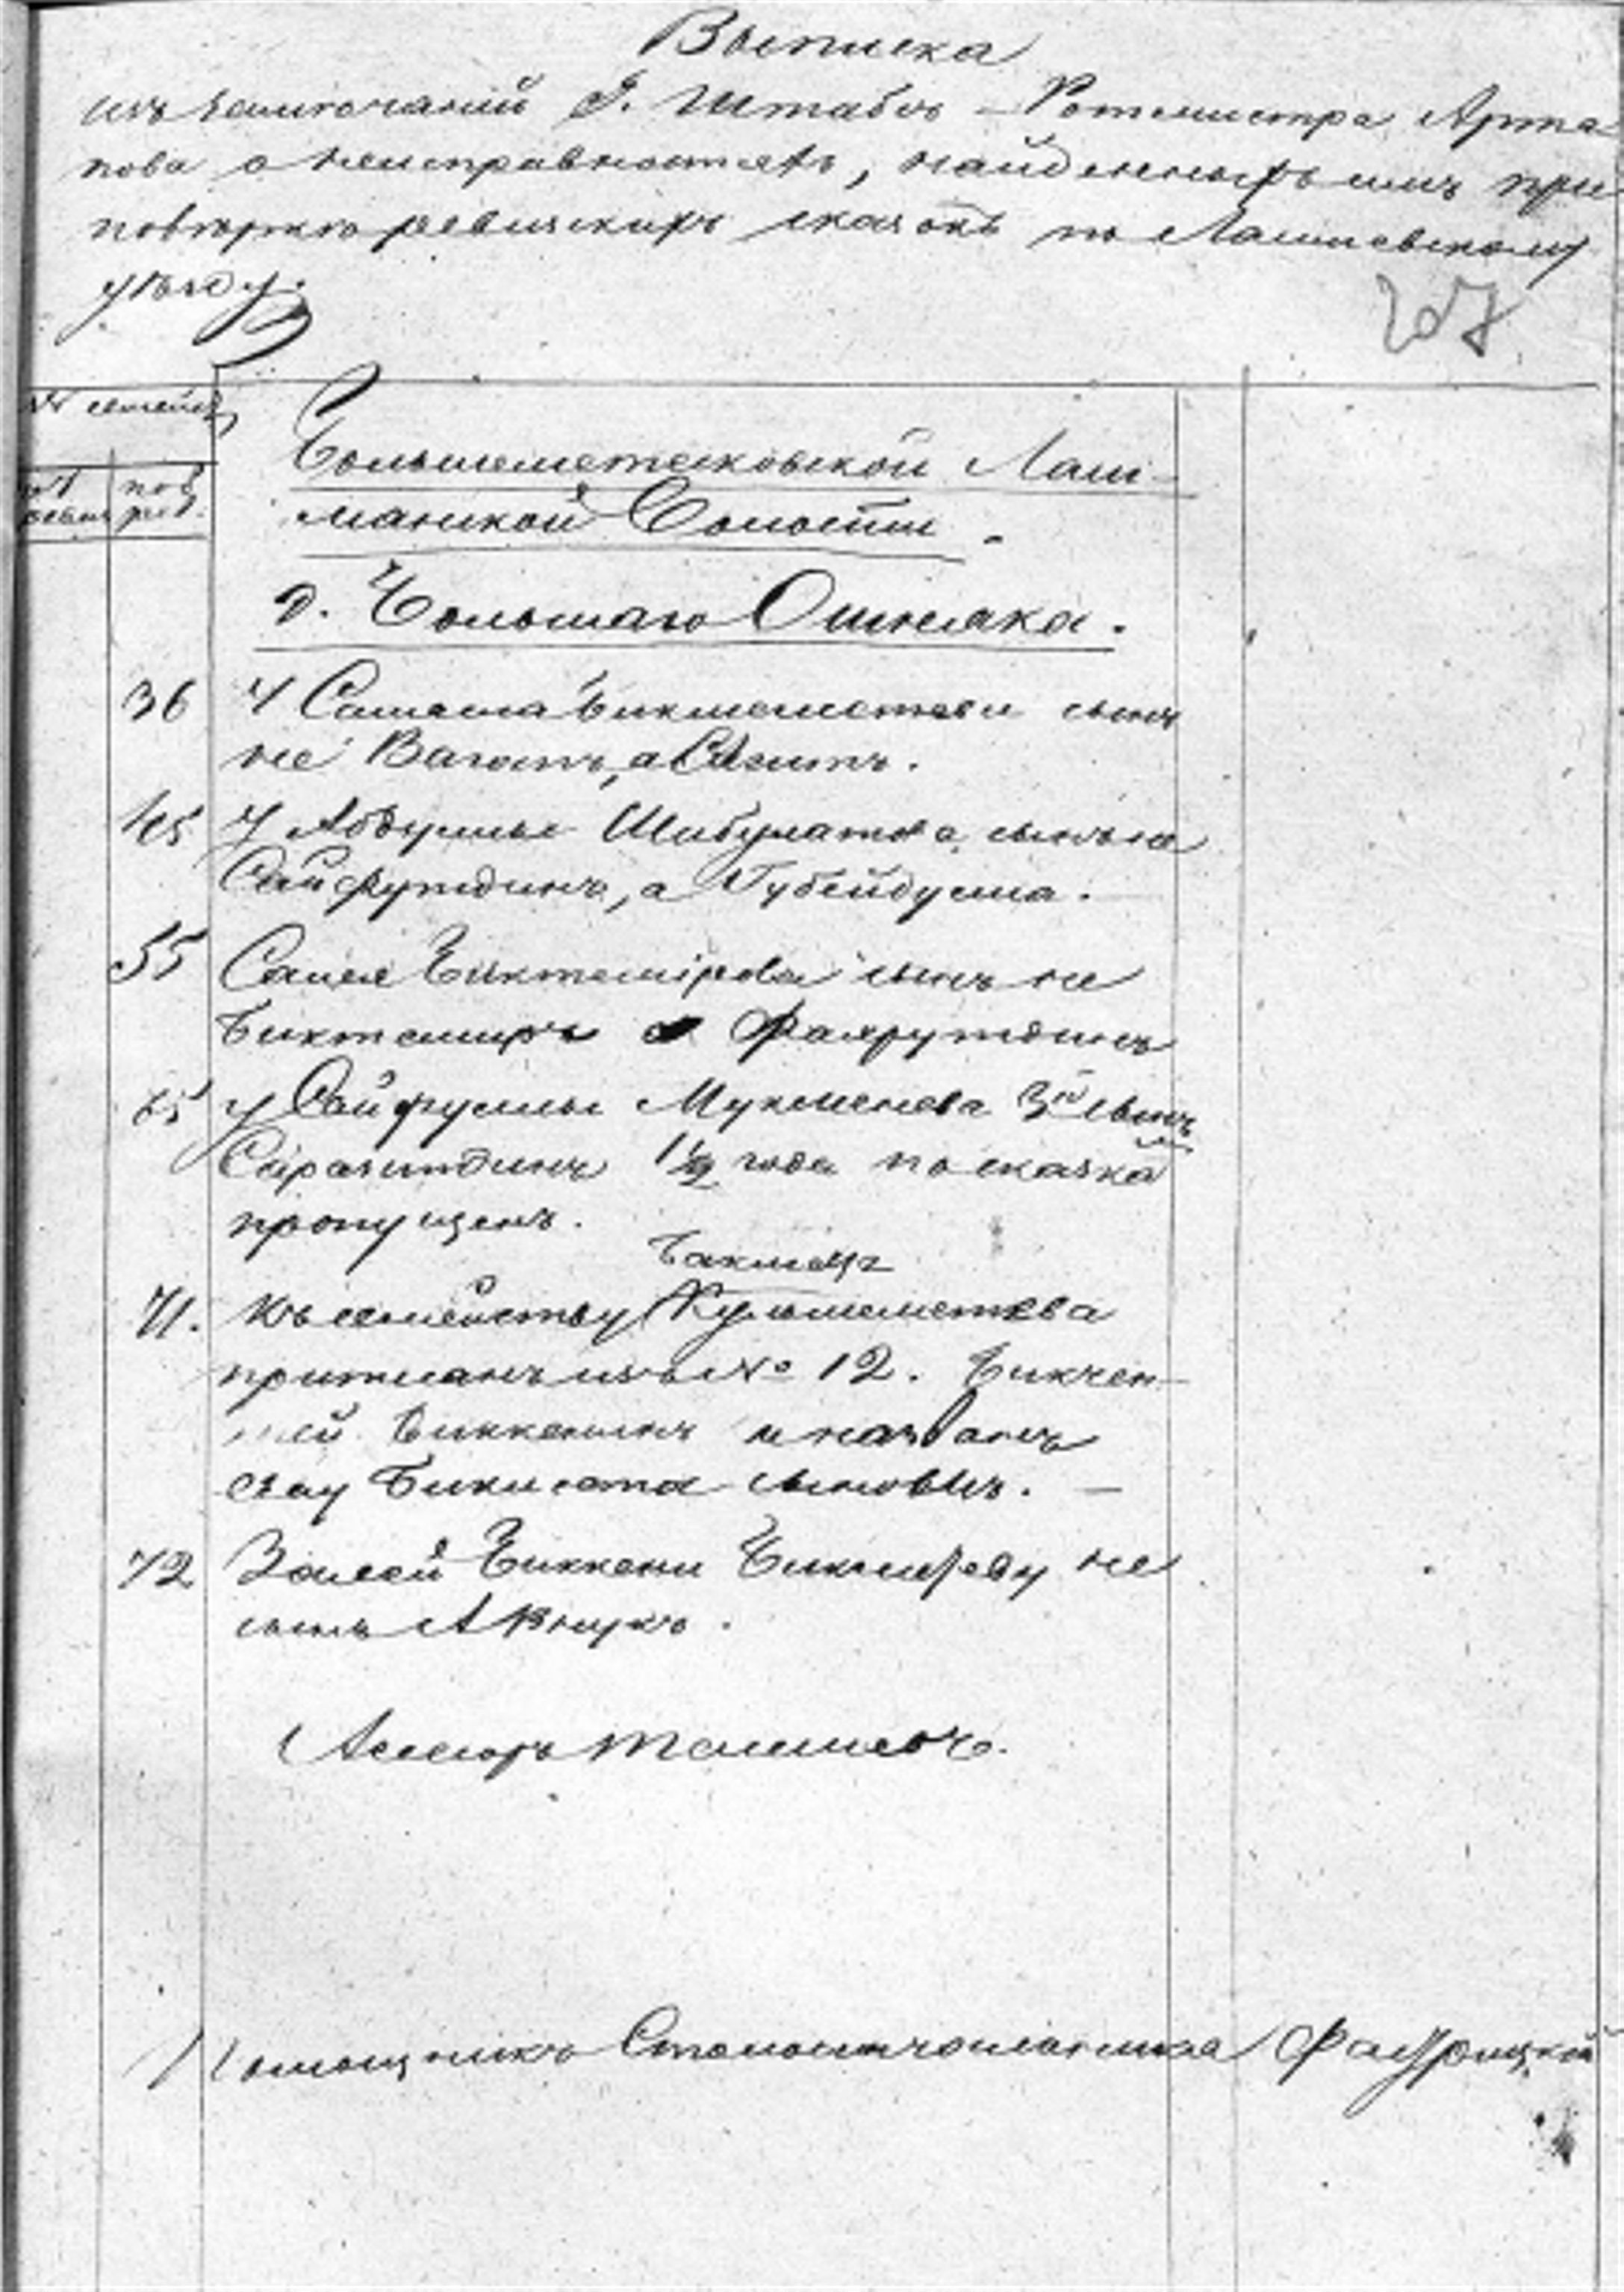 Выписка
изъ замечаний Г. Штабсъ-Ротмистра Арта
пова о неисправностяхъ, найденныхъ имъ при
поверке ревизскихъ сказокъ по Лаишевскому
уезду.
207
№ семей
пов
рев.
Большеметесковской Лаш-
манской Волости.
д. Большаго Ошняка.
36 У сынъ
не Вагапъ, а Сагитъ.
45 У Абдуллы Шабулатова сынъ не
Сайфутдинъ, а Губейдулла.
55 Салея Биктемірова сынъ не
Биктемиръ а Фахрутдинъ
65 у Сайфуллы Мукменева 3й сынъ
Сиразитдинъ 1½ года по сказкѣ
пропущенъ.
71. Къ семейству Кульмаметева
изъ № 12. Бикчен-
и названъ
ему сыновьемъ. —
72 Залей Биккени не
сынъ а внукъ.
Асессоръ
Помощникъ Столоначальника